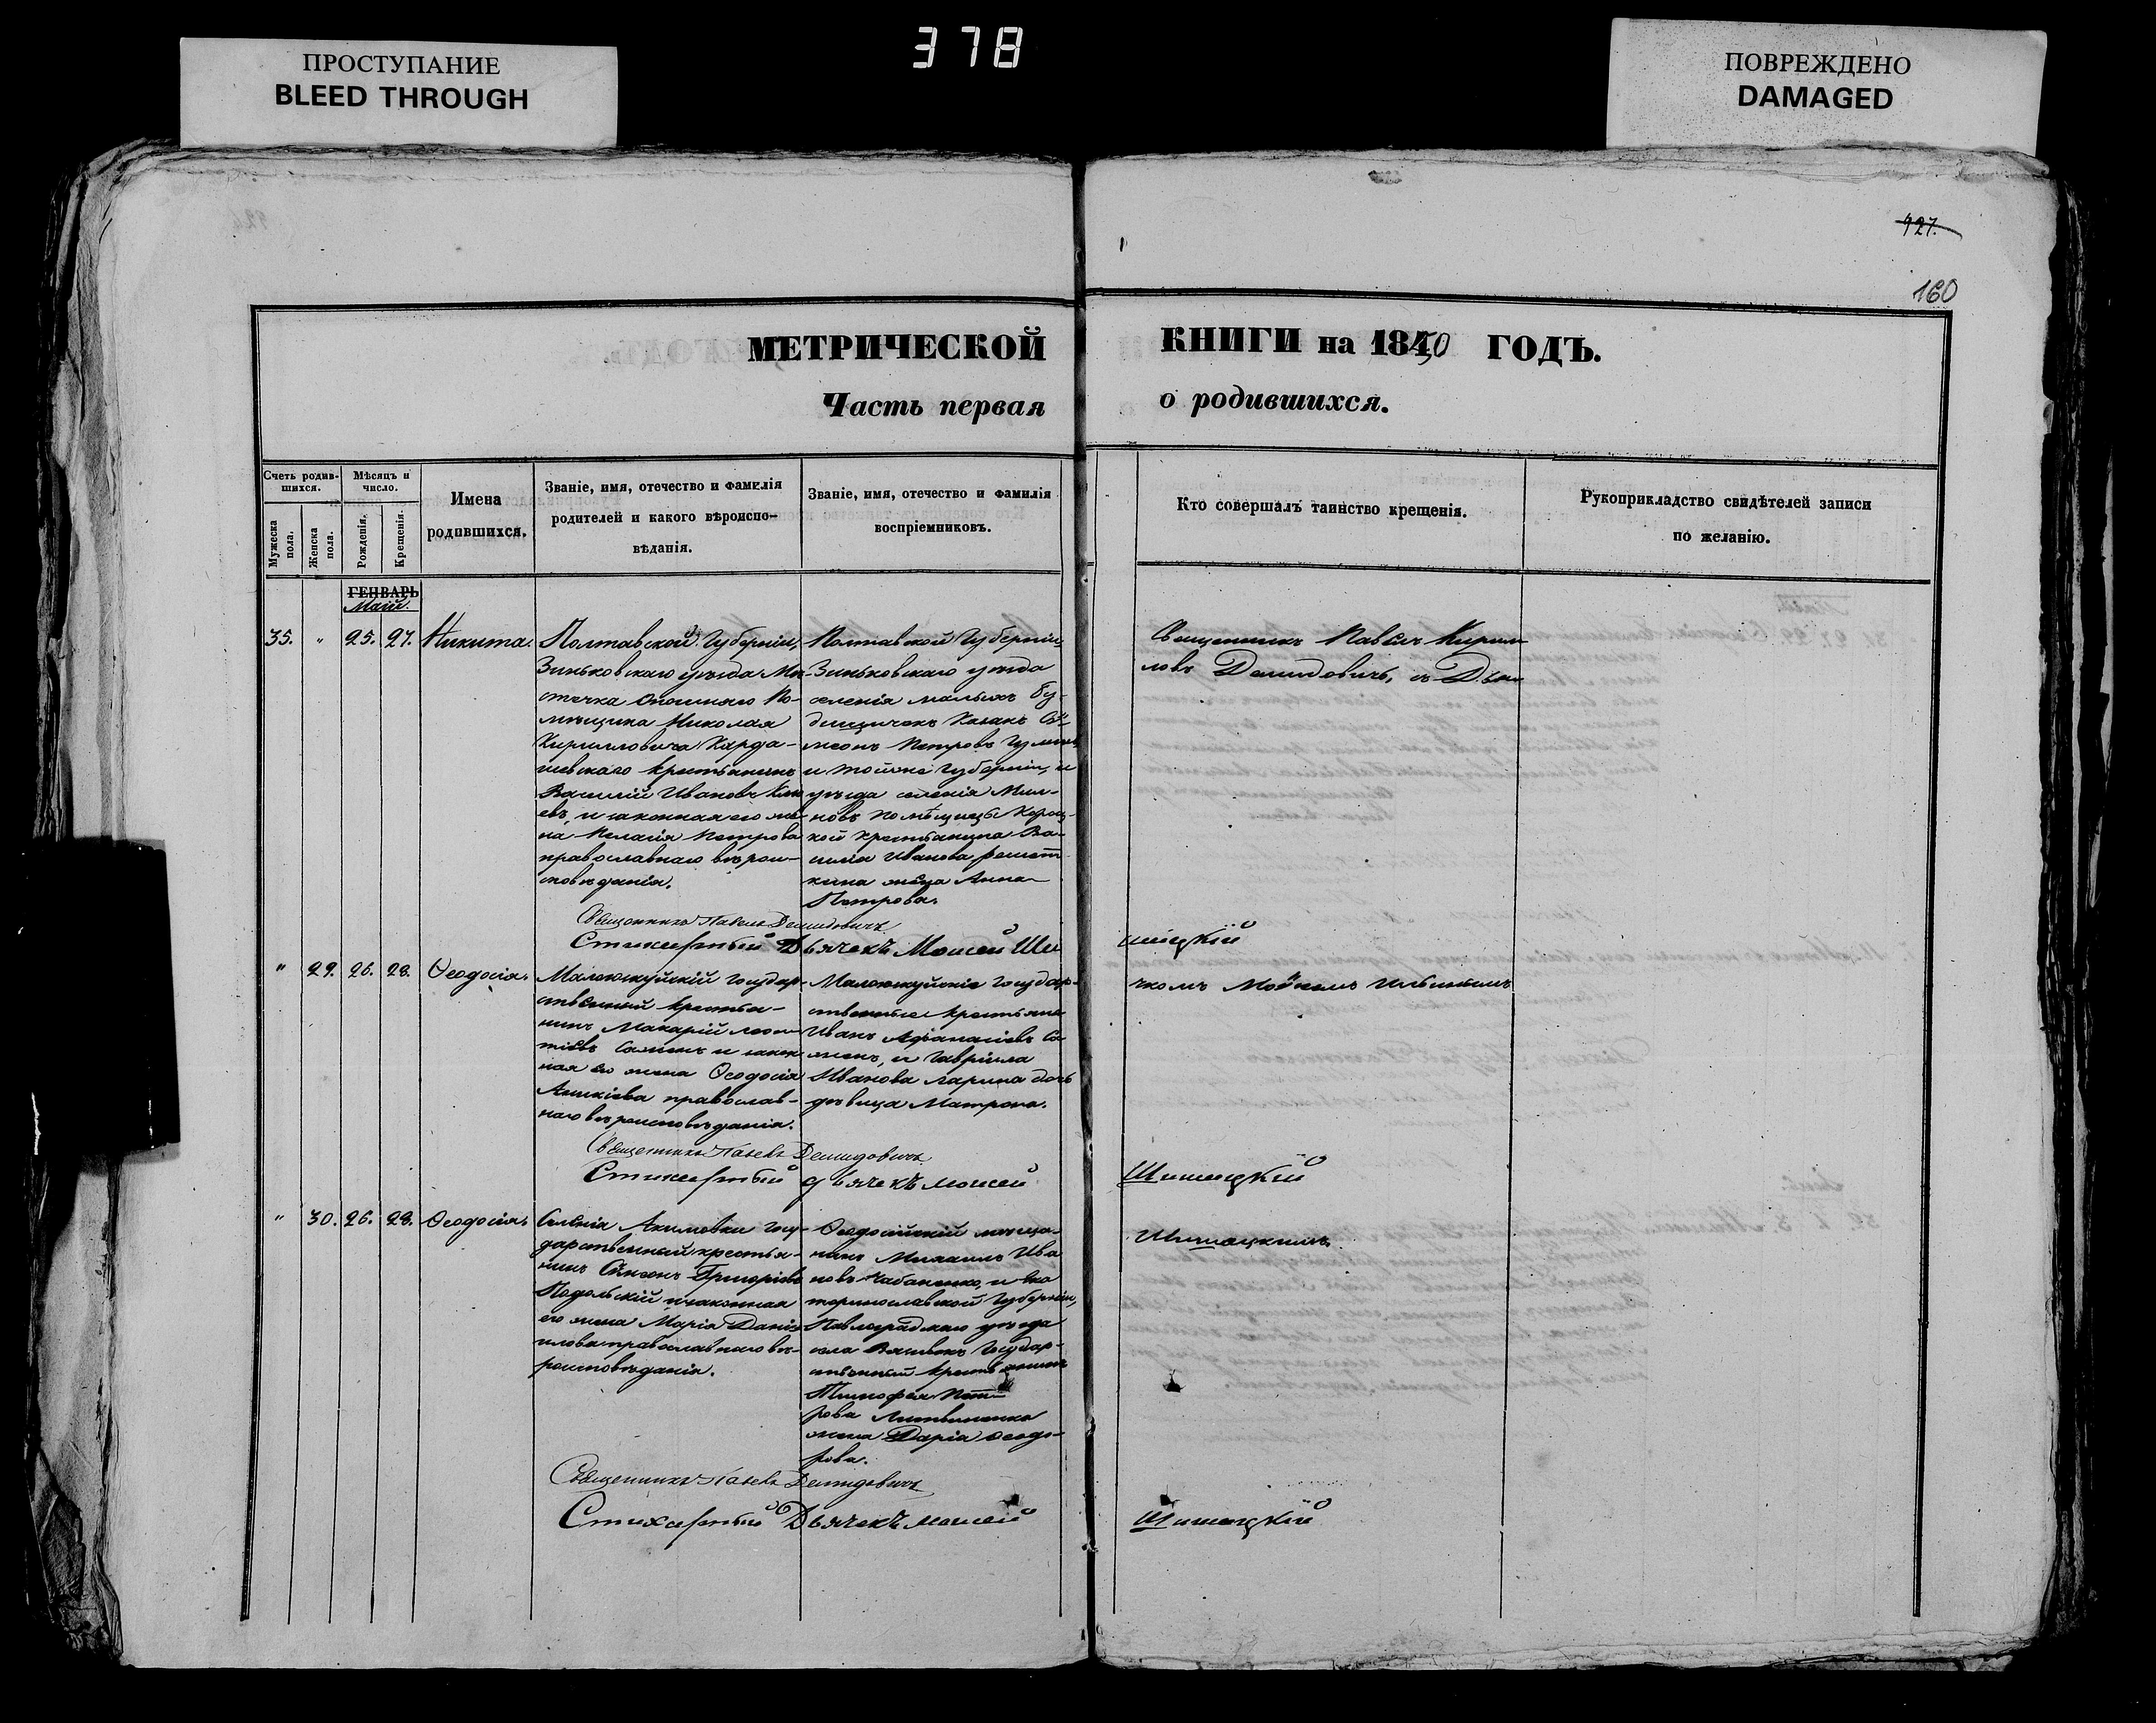 378
ПРОСТУПАНИЕ
BLEED THROUGH
ПОВРЕЖДЕНО
DAMAGED
427.
160
МЕТРИЧЕСКОЙ КНИГИ на 1850 ГОДЪ.
Часть первая о родившихся.
Счетъ родив-
шихся.
Мужеска пола.
Женска пола.
Мѣсяцъ и
число.
Рожденія.
Крещенія.
Имена
родившихся.
Званіе, имя, отечество и фамилія
родителей и какого вѣроиспо-
вѣданія.
Званіе, имя, отечество и фамилія
воспріемниковъ.
Кто совершалъ таинство крещенія.
Рукоприкладство свидѣтелей записи
по желанію.
ГЕНВАРЬ
Маій.
35. " 25. 27. Никита.
Полтавской Губерніи,
Зиньковскаго уѣзда Мѣ-
стечка Опошняго По-
мѣщика Николая
Кирилловича Карда-
шевскаго крестьянинъ
Василій Ивановъ
евъ, и законная его же-
на Пелагія Петрова
православнаго вѣрои-
сповѣданія.
Полтавской Губерніи,
Зиньковскаго уѣзда
селенія малыхъ Бу-
дищичекъ Казакъ Сѵ-
меонъ Петровъ
и тойже Губерніи, и
уѣзда селенія Мил-
новъ помѣщицы
кой крестьянина Ва-
силія Иванова Решет
кина жена Анна
Петрова.
Священникъ Павелъ Кирил
ловъ Демидовичъ, съ Дья
Священникъ Павелъ Демидовичъ
Стихарный Дьячекъ Моисей Ши
шацкій
" 29. 26. 28. Ѳеодосія.
Малоюкуйскій государ-
ственный крестья-
нинъ Макарій Леон
тіевъ Саменъ и закон
ная его жена Ѳеодосія
православ-
наго вѣроисповѣданія.
государ-
ственные крестьяне
Иванъ Аѳанасіевъ Са
менъ, и Гавріила
Иванова Ларина дочь
дѣвица Матрона.
чкомъ Моѵсеемъ Ильинымъ
Священникъ Павелъ Демидовичъ
Стихарный дьячекъ Моисей Шишацкій
" 30. 26. 28. Ѳеодосія.
Селенія Акимовки госу-
дарственный крестья-
нинъ Сѵмеонъ Григоріевъ
Подольскій и законная
его жена Марія Даніи
илова православнаго вѣ-
роисповѣданія.
Ѳеодосійскій мѣща-
нинъ Михаилъ Ива
новъ Чабаненко, и Ека
теринославской Губерніи,
Павлоградскаго уѣзда
села государ-
ственный крестьянинъ
Тимофея Пет
рова Литвиненка
жена Дарія Ѳеодо-
рова.
Шишацкимъ.
Священникъ Павелъ Демидовичъ
Стихарный Дьячекъ Моисей Шишацкій